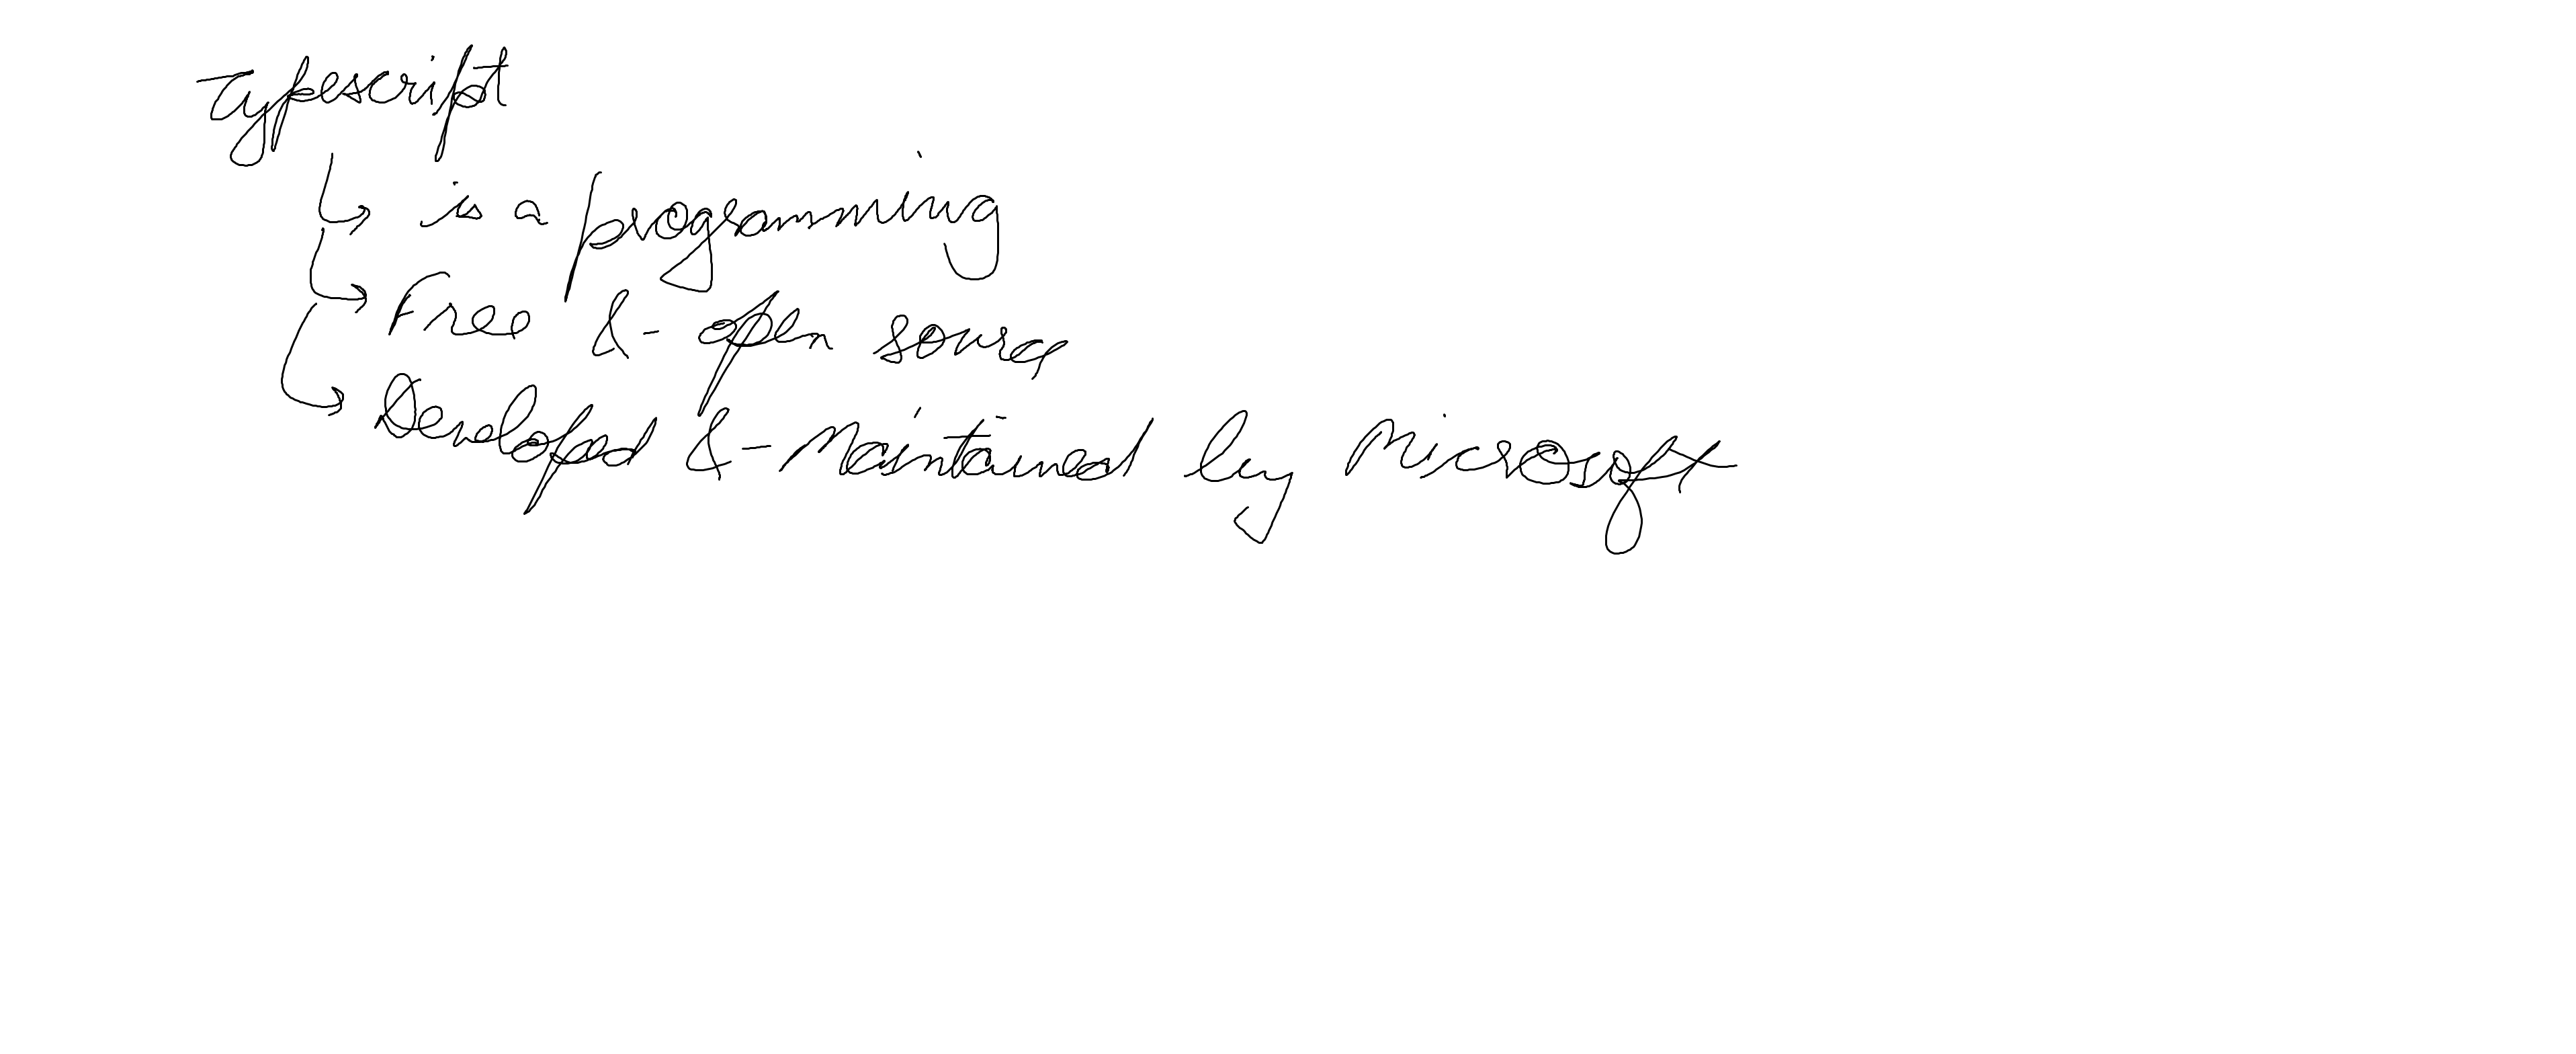 Typescript
↳ is a programming
↳ Free & open source
↳ Developed & Maintained by Microsoft